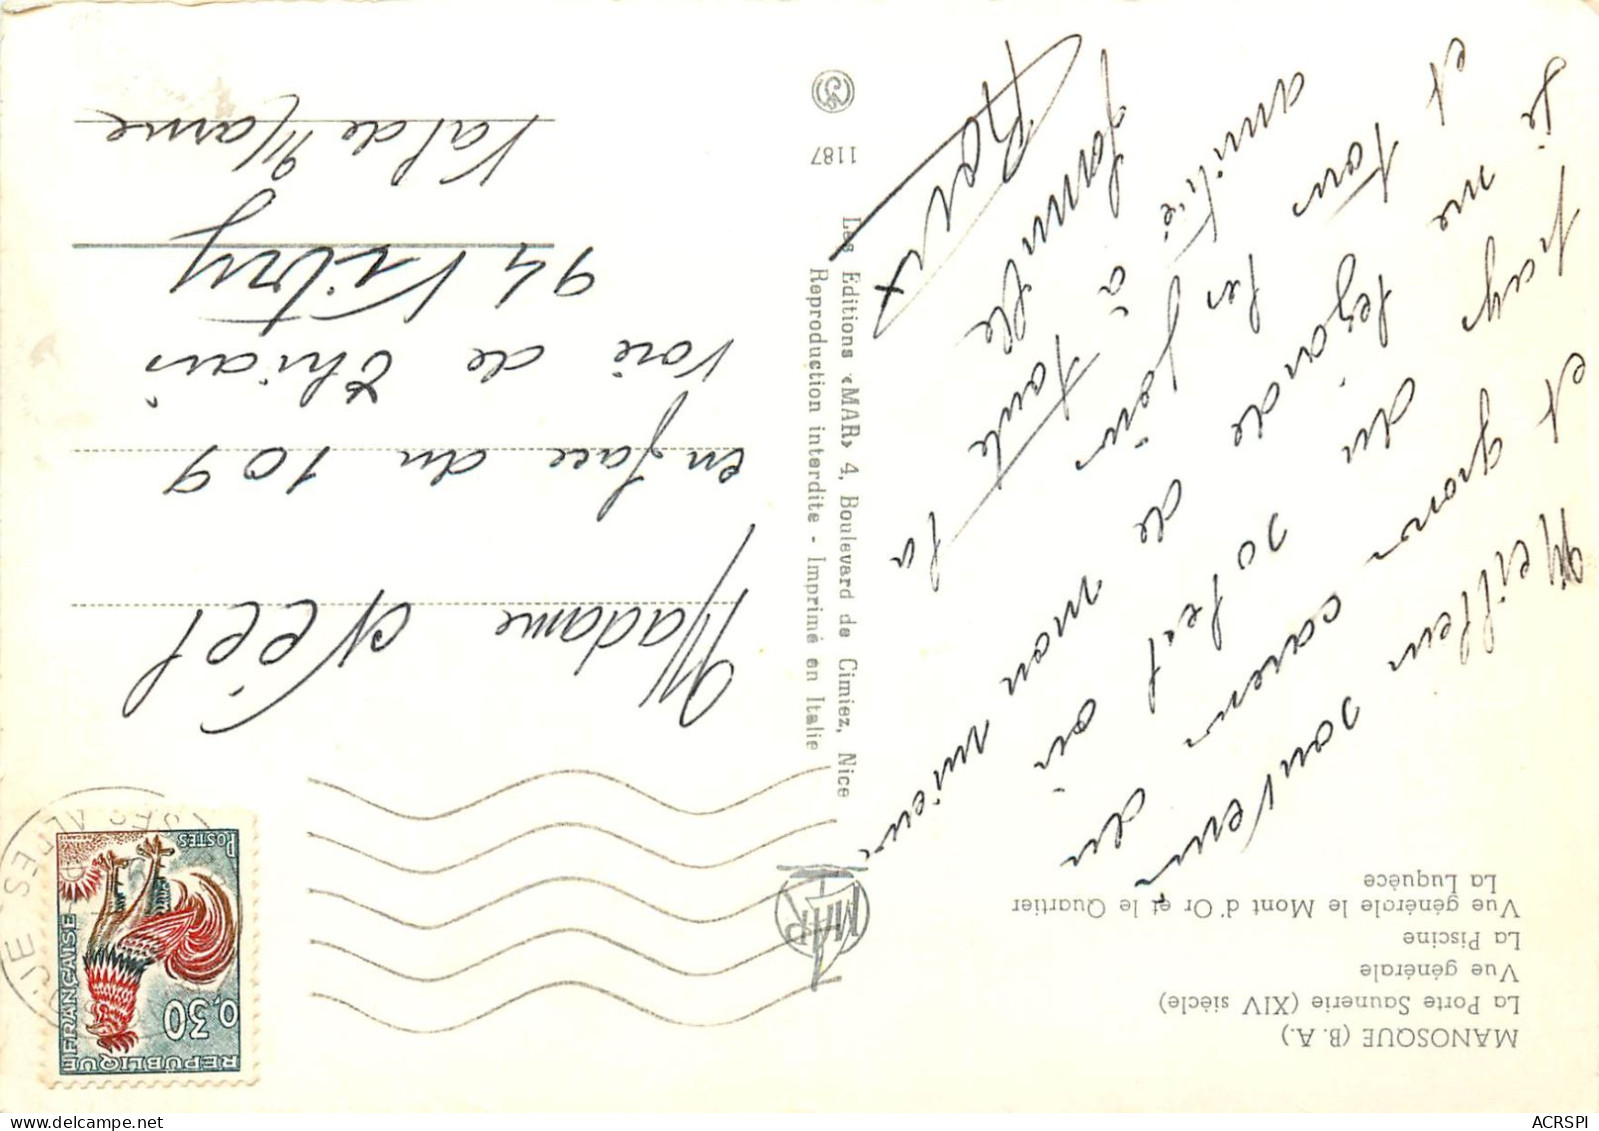 MANOSQUE (B. A.)
La Porte Saunerie (XIV siècle)
Vue générale
La Piscine
Vue générale le Mont d'Or et le Quartier
La Luquèce
Meilleur souvenir
et gros
du
pays du soleil où
je me de mon mieux
et tous les jours
amitié à toute la
famille
MAR
Les Editions «MAR» 4, Boulevard de Cimiez, Nice
Reproduction interdite - Imprimé en Italie
1187
REPUBLIQUE FRANÇAISE
0,30
POSTES
Madame Néel
en face du 109
Voie de Thiais
94 Vitry
Val de Marne
ACRSPI